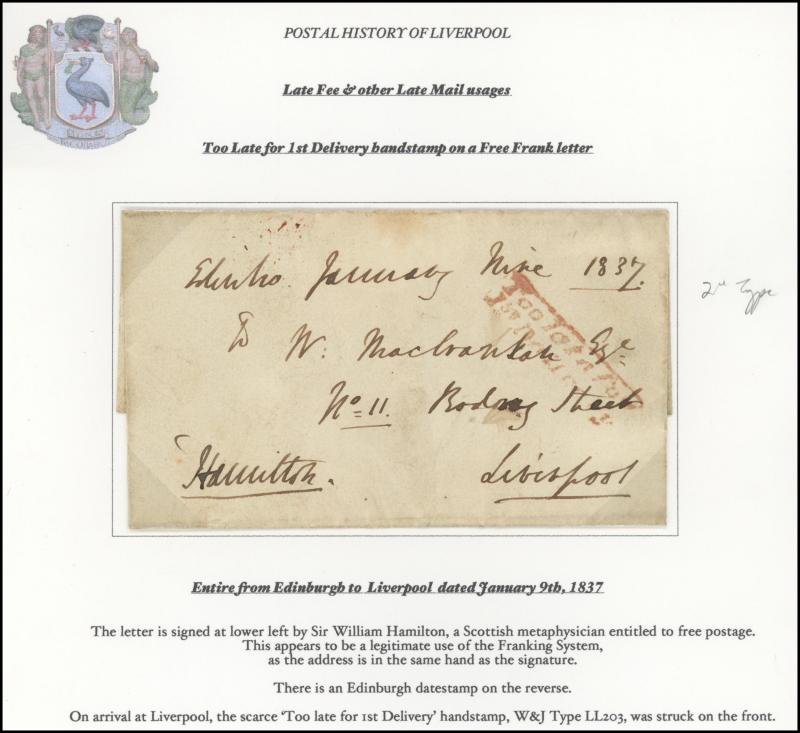 POSTAL HISTORY OF LIVERPOOL
Late Fee & other Late Mail usages
Too Late for 1st Delivery handstamp on a Free Frank letter
Edinbro. January Nine 1837.
2nd Type
Too Late for
1st Delivery
To W. Esqe
No 11. Rodney Street
Hamilton.
Liverpool
Entire from Edinburgh to Liverpool dated January 9th, 1837
The letter is signed at lower left by Sir William Hamilton, a Scottish metaphysician entitled to free postage.
This appears to be a legitimate use of the Franking System,
as the address is in the same hand as the signature.
There is an Edinburgh datestamp on the reverse.
On arrival at Liverpool, the scarce ‘Too late for 1st Delivery’ handstamp, W&J Type LL203, was struck on the front.